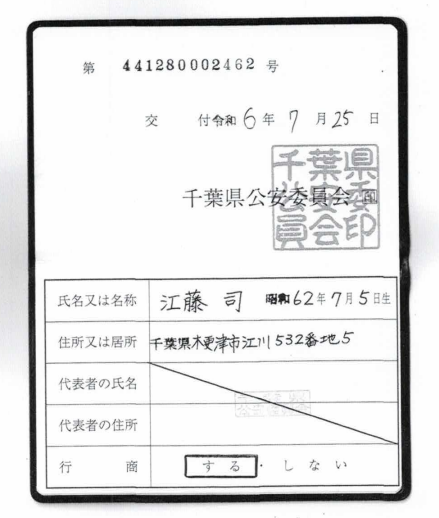 第 441280002462 号
交 付 令和 6 年 7 月 25 日
千葉県公安委員会 印
千葉県公安委員会印
氏名又は名称 江藤 司 昭和 62 年 7 月 5 日生
住所又は居所 千葉県木更津市江川 532番地5
代表者の氏名
代表者の住所
行 商 する・しない